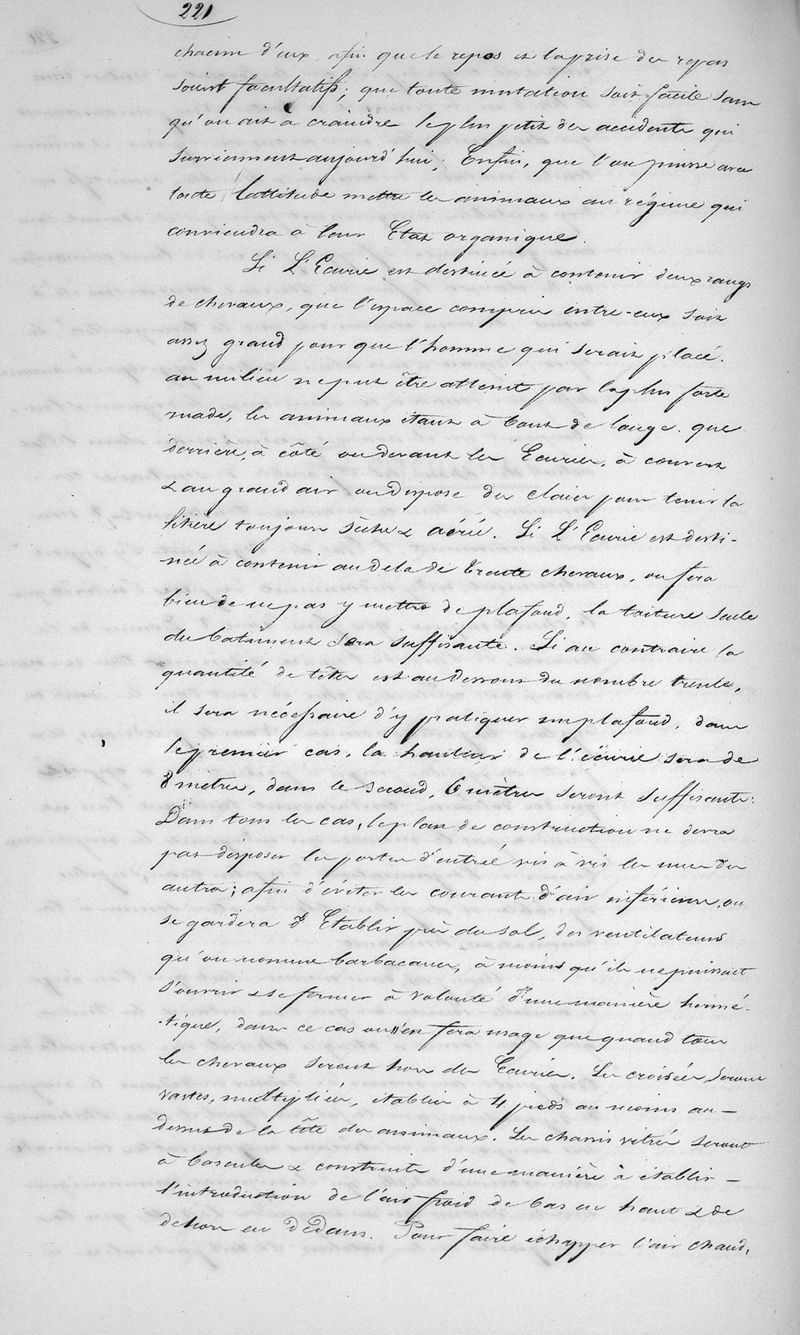 221
chacun d'eux, afin que le repos et la prise des repas
soient facultatifs; que toute mutation soit facile sans
qu'on ait à craindre le plus petit des accidents qui
surviennent aujourd'hui; Enfin, que l'on puisse avec
toute lattitude mettre les animaux au régime qui
conviendra à leur Etat organique.
Si L'Ecurie est destinée à contenir deux rangs
de chevaux, que l'espace compris entre-eux soit
assez grand pour que l'homme qui serait placé.
au milieu ne put être atteint par la plus forte
ruade, les animaux étant à bout de longe. que
derrière, à côté ou devant les Ecuries, à couvert
& au grand air on dispose des claies pour tenir la
litière toujours sèche & aérée. Si L'Ecurie est desti-
née à contenir au dela de trente chevaux, on fera
bien de ne pas y mettre de plafond, la toiture seule
du batiment sera suffisante. Si au contraire la
quantité de têtes est au dessous du nombre trente,
il sera nécessaire d'y pratiquer un plafond, dans
le premier cas, la hauteur de l'écurie sera de
8 mètres, dans le second, 6 mètres seront suffisants.
Dans tous les cas, le plan de construction ne devra
pas disposer les portes d'entrée vis à vis les unes des
autres; afin d'éviter les courants d'air inférieurs, on
se gardera d'Etablir près du sol, des ventilateurs
qu'on nomme barbacanes, à moins qu'ils ne puissent
s'ouvrir & se fermer à volonté d'une manière hermé-
tique, dans ce cas on n'en fera usage que quand tous
les chevaux seront hors des Ecuries. Les croisées seront
vastes, multipliées, établies à 4 pieds au moins au-
dessus de la tête des animaux. Les chassis vitrés seront
à bascules & construits d'une manière à établir -
l'introduction de l'air froid de bas en haut & de
dehors en dedans. Pour faire échapper l'air chaud,